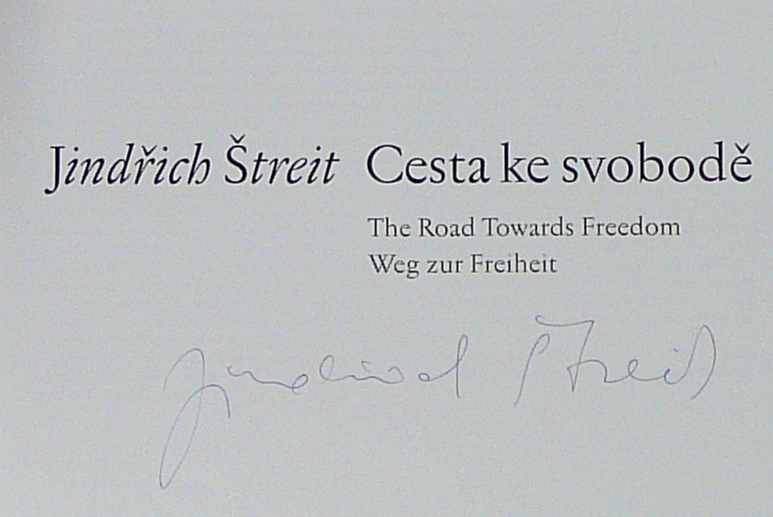 Jindřich Štreit Cesta ke svobodě
The Road Towards Freedom
Weg zur Freiheit
Jindřich Štreit